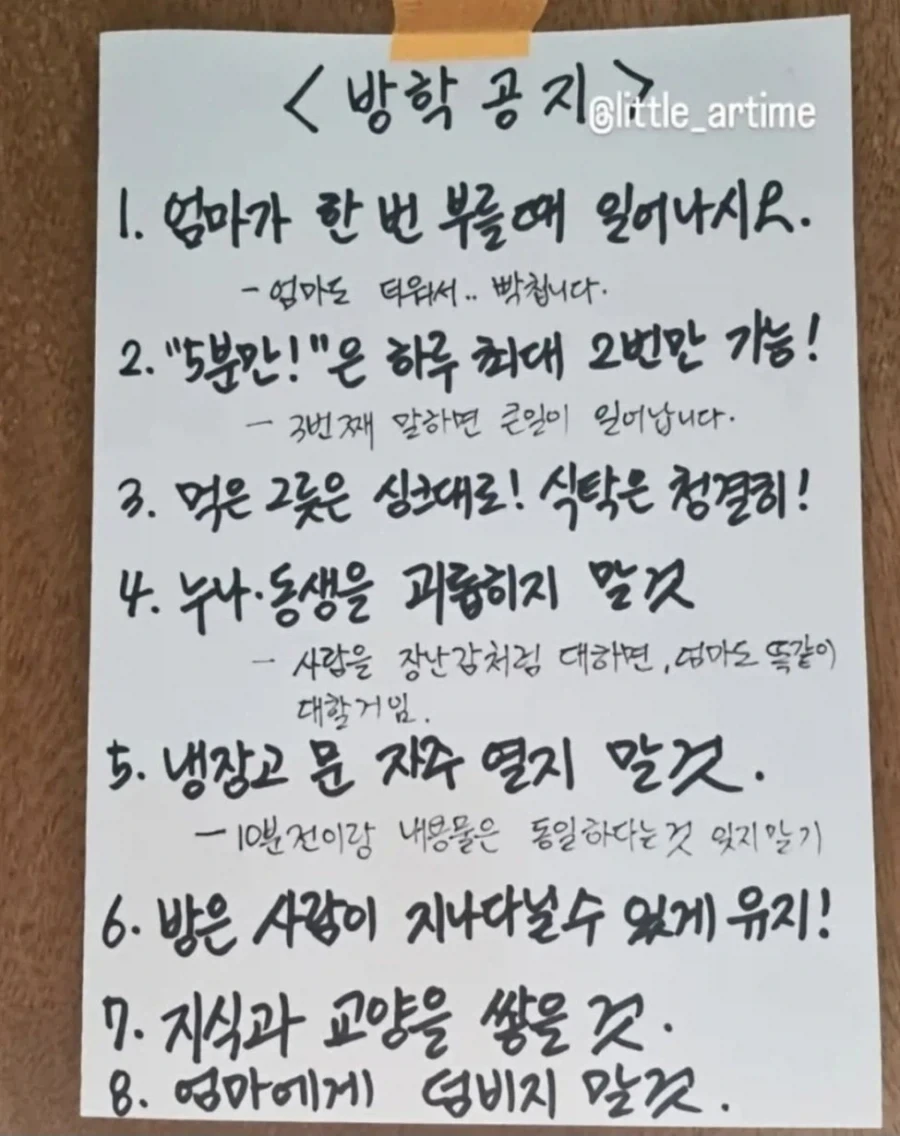 <방학 공지>
@little_artime
1. 엄마가 한 번 부를때 일어나시오.
- 엄마도 더워서.. 빡칩니다.
2. "5분만!"은 하루 최대 2번만 가능!
- 3번째 말하면 큰일이 일어납니다.
3. 먹은 그릇은 싱크대로! 식탁은 청결히!
4. 누나·동생을 괴롭히지 말것
- 사람을 장난감처럼 대하면, 엄마도 똑같이
대할거임.
5. 냉장고 문 자주 열지 말것.
- 10분전이랑 내용물은 동일하다는것 잊지말기
6. 방은 사람이 지나다닐수 있게 유지!
7. 지식과 교양을 쌓을 것.
8. 엄마에게 덤비지 말것.